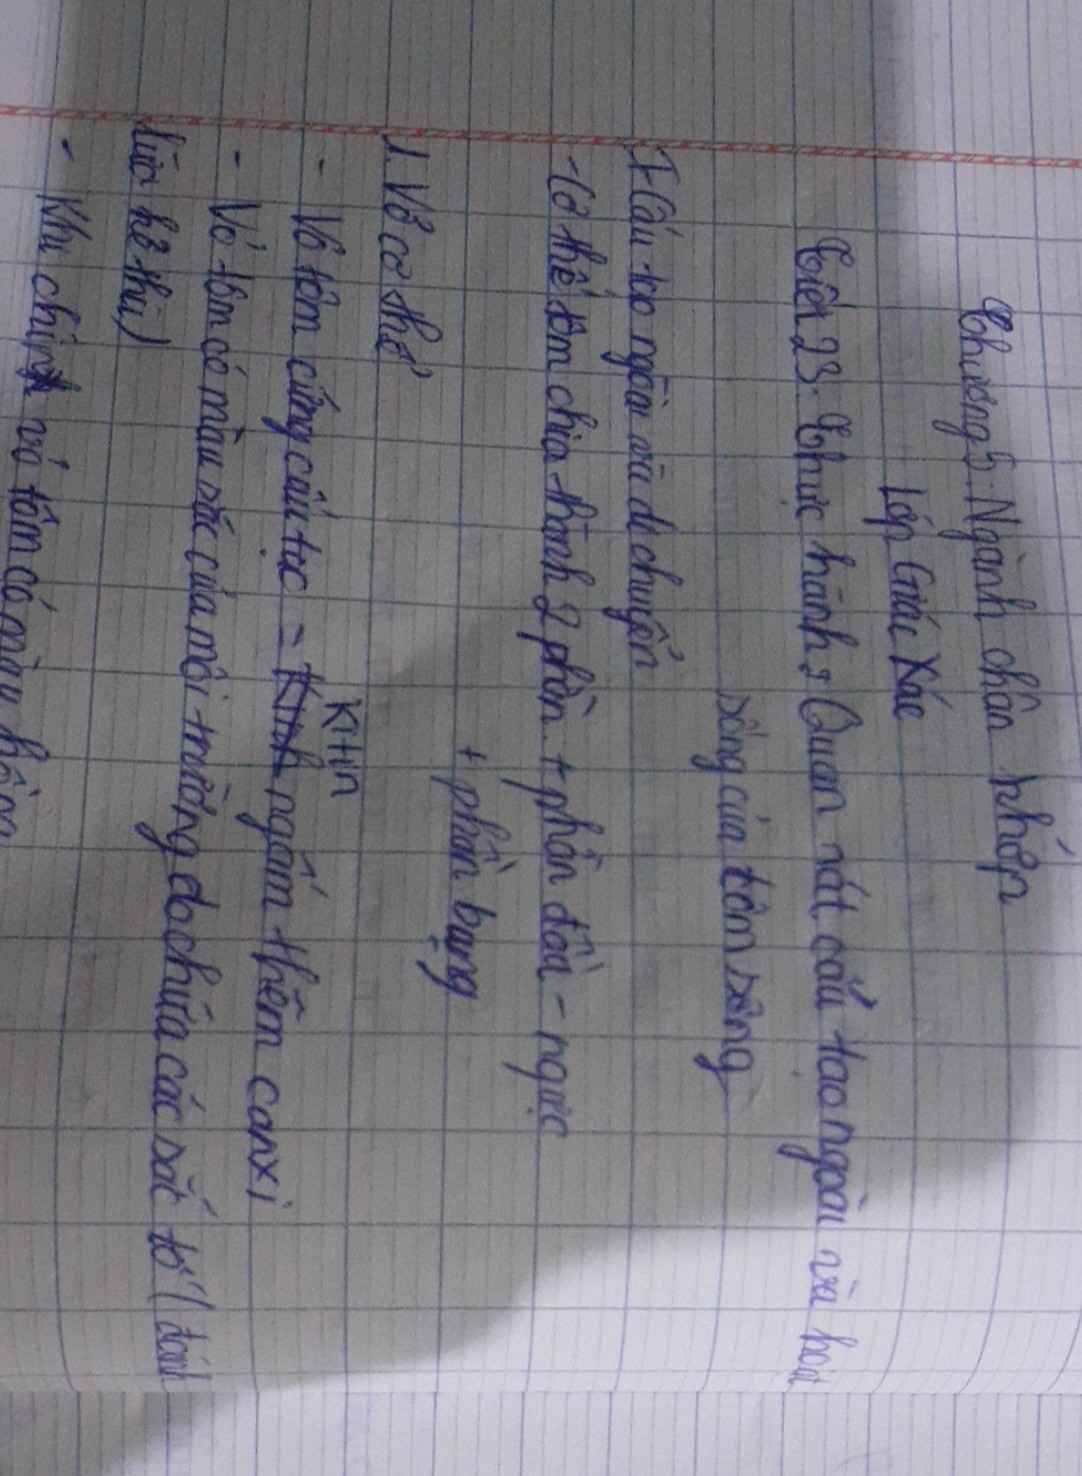 Chương 5: Ngành chân khớp
Lớp Giác Xác
Tiết 23: Thực hành: Quan sát cấu tạo ngoài và hoạt
sống của tôm sông
I-Cấu tạo ngoài và di chuyển
-Cơ thể tôm chia thành 2 phần + phần đầu - ngực
+ phần bụng
1. Vỏ cơ thể
- Vỏ tôm cứng cấu tạc = Kitin ngấm thêm canxi
- Vỏ tôm có màu sắc của môi trường do chứa các sắc tố (đánh
lừa kẻ thù)
- Khi chín vỏ tôm có màu hồng